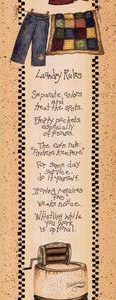 Laundry Rules
Separate colors
and
treat the spots.
Empty pockets
especially
of tissues.
The coin rule:
"Finders Keepers."
For same day
service,
do it yourself.
Ironing requires
two
weeks notice.
Whistling while
you work
is optional.